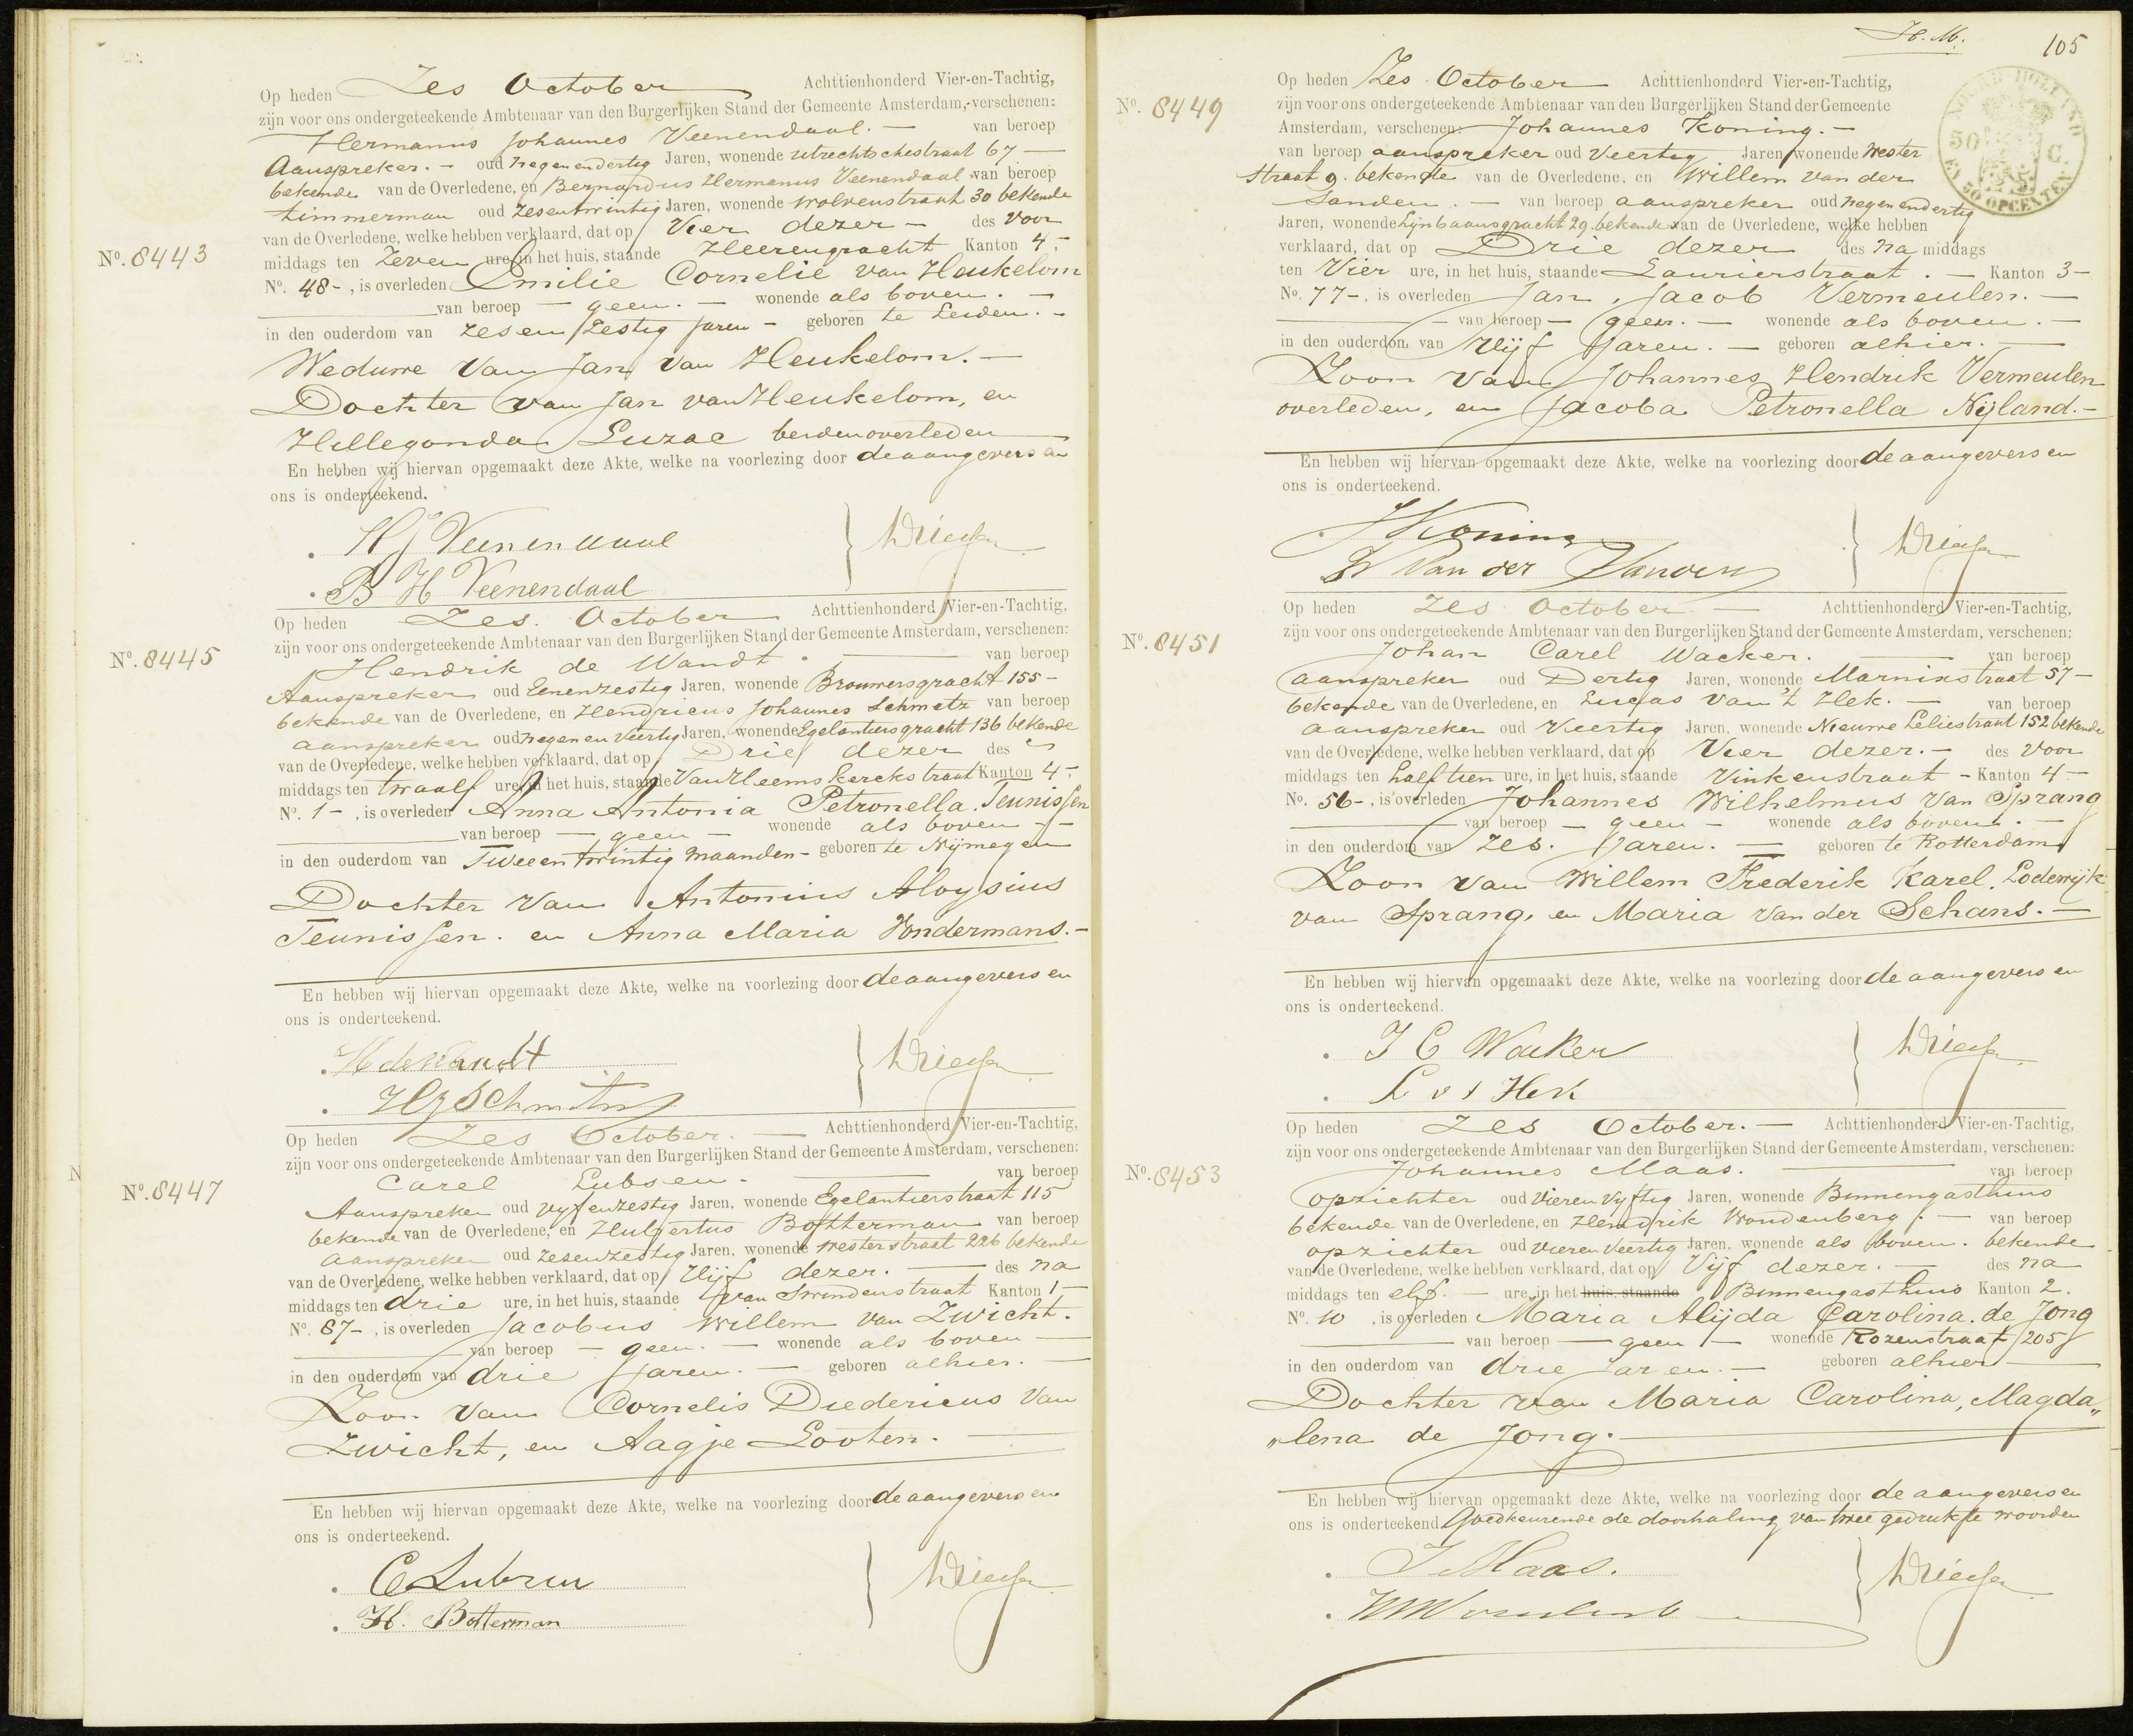 Op heden Zes October Achttienhonderd Vier-en-Tachtig,
zijn voor ons ondergeteekende Ambtenaar van den Burgerlijken Stand der Gemeente Amsterdam, verschenen:
Hermanus Johannes Veenendaal. — van beroep
Aanspreker. — oud negenendertig Jaren, wonende Utrechtschestraat 67 —
bekende van de Overledene, en Bernardus Hermanus Veenendaal van beroep
timmerman oud zesentwintig Jaren, wonende Wolvenstraat 30 bekende
van de Overledene, welke hebben verklaard, dat op Vier dezer — des voor
No. 8443
middags ten Zeven ure, in het huis, staande Heerengracht Kanton 4-
No. 48-, is overleden Emilie Cornelie van Heukelom
van beroep — geen. — wonende als boven. —
in den ouderdom van zesenzestig jaren — geboren te Leiden. —
Weduwe van Jan van Heukelom. —
Dochter van Jan van Heukelom, en
Hillegonda Luzac beiden overleden
En hebben wij hiervan opgemaakt deze Akte, welke na voorlezing door de aangevers en
ons is onderteekend.
HJ Veenendaal
B H Veenendaal
Op heden Zes. October Achttienhonderd Vier-en-Tachtig,
zijn voor ons ondergeteekende Ambtenaar van den Burgerlijken Stand der Gemeente Amsterdam, verschenen:
No. 8445
Hendrik de Wandt. van beroep
Aanspreker oud Eenenzestig Jaren, wonende Brouwersgracht 155 —
bekende van de Overledene, en Hendricus Johannes Schmetz van beroep
aanspreker oud negenenveertig Jaren, wonende Egelantiersgracht 136 bekende
van de Overledene, welke hebben verklaard, dat op Drie dezer des
middags ten twaalf ure, in het huis, staande Van Heemskerckstraat Kanton 4-
No. 1-, is overleden Anna Antonia Petronella Teunissen
van beroep — geen — wonende als boven —
in den ouderdom van Tweeentwintig maanden — geboren te Nijmegen
Dochter van Antonius Aloysius
Teunissen. en Anna Maria Hondermans. —
En hebben wij hiervan opgemaakt deze Akte, welke na voorlezing door de aangevers en
ons is onderteekend.
H de Wandt
HJ Schmetz
Op heden Zes October. — Achttienhonderd Vier-en-Tachtig,
zijn voor ons ondergeteekende Ambtenaar van den Burgerlijken Stand der Gemeente Amsterdam, verschenen:
No. 8447
Carel Lubsen. van beroep
Aanspreker oud vijfenzestig Jaren, wonende Egelantierstraat 115
bekende van de Overledene, en Hulgertus Botterman van beroep
aanspreker oud zesenzestig Jaren, wonende Westerstraat 226 bekende
van de Overledene, welke hebben verklaard, dat op Vijf dezer. — des na
middags ten drie ure, in het huis, staande van Swindenstraat Kanton 1-
No. 87-, is overleden Jacobus Willem van Zwicht.
van beroep — geen. — wonende als boven —
in den ouderdom van drie jaren. — geboren alhier. —
Zoon van Cornelis Diedericus van
Zwicht, en Aagje Looten. —
En hebben wij hiervan opgemaakt deze Akte, welke na voorlezing door de aangevers en
ons is onderteekend.
C Lubsen
H. Botterman
H. M.
105
NOORD-HOLLAND
50 C.
EN 50 OPCENTEN
Op heden Zes October Achttienhonderd Vier-en-Tachtig,
No. 8449
zijn voor ons ondergeteekende Ambtenaar van den Burgerlijken Stand der Gemeente
Amsterdam, verschenen: Johannes Koning. —
van beroep aanspreker oud Veertig Jaren, wonende Wester
straat 9. bekende van de Overledene, en Willem van der
Sanden. — van beroep aanspreker oud negenendertig
Jaren, wonende Lijnbaansgracht 29. bekende van de Overledene, welke hebben
verklaard, dat op Drie dezer des na middags
ten Vier ure, in het huis, staande Laurierstraat. — Kanton 3-
No. 77-, is overleden Jan Jacob Vermeulen. —
van beroep — geen. — wonende als boven. —
in den ouderdom van Vijf jaren. — geboren alhier. —
Zoon van Johannes Hendrik Vermeulen
overleden, en Jacoba Petronella Nijland. —
En hebben wij hiervan opgemaakt deze Akte, welke na voorlezing door de aangevers en
ons is onderteekend.
J Koning
W Van der Sanden
Op heden Zes October — Achttienhonderd Vier-en-Tachtig,
zijn voor ons ondergeteekende Ambtenaar van den Burgerlijken Stand der Gemeente Amsterdam, verschenen:
No. 8451
Johan Carel Wacker. van beroep
aanspreker oud Dertig Jaren, wonende Marnixstraat 57 —
bekende van de Overledene, en Lucas van 't Hek. — van beroep
aanspreker oud Veertig Jaren, wonende Nieuwe Leliestraat 152 bekende
van de Overledene, welke hebben verklaard, dat op Vier dezer. — des voor
middags ten half tien ure, in het huis, staande Vinkenstraat — Kanton 4 —
No. 56-, is overleden Johannes Wilhelmus van Sprang
van beroep — geen — wonende als boven. —
in den ouderdom van Zes. jaren. — geboren te Rotterdam
Zoon van Willem Frederik Karel Lodewijk
van Sprang, en Maria van der Schans. —
En hebben wij hiervan opgemaakt deze Akte, welke na voorlezing door de aangevers en
ons is onderteekend.
J C Wacker
L v t Hek
Op heden Zes October. — Achttienhonderd Vier-en-Tachtig,
zijn voor ons ondergeteekende Ambtenaar van den Burgerlijken Stand der Gemeente Amsterdam, verschenen:
No. 8453
Johannes Maas. van beroep
opzichter oud vierenvijftig Jaren, wonende Binnengasthuis
bekende van de Overledene, en Hendrik Woudenberg. — van beroep
opzichter oud vierenveertig Jaren, wonende als boven. bekende
van de Overledene, welke hebben verklaard, dat op Vijf dezer. — des na
middags ten elf. — ure, in het huis, staande Binnengasthuis Kanton 2.
No. 10, is overleden Maria Alijda Carolina de Jong
van beroep — geen — wonende Rozenstraat 205
in den ouderdom van drie jaren. — geboren alhier —
Dochter van Maria Carolina, Magda„
„lena de Jong. —
En hebben wij hiervan opgemaakt deze Akte, welke na voorlezing door de aangevers en
ons is onderteekend. Goedkeurende de doorhaling van twee gedrukte woorden
J Maas.